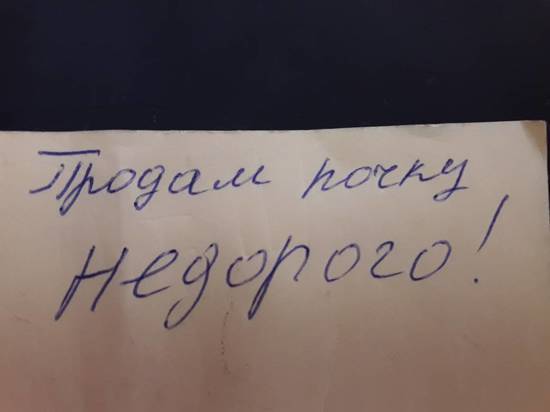 Продам почку
недорого!